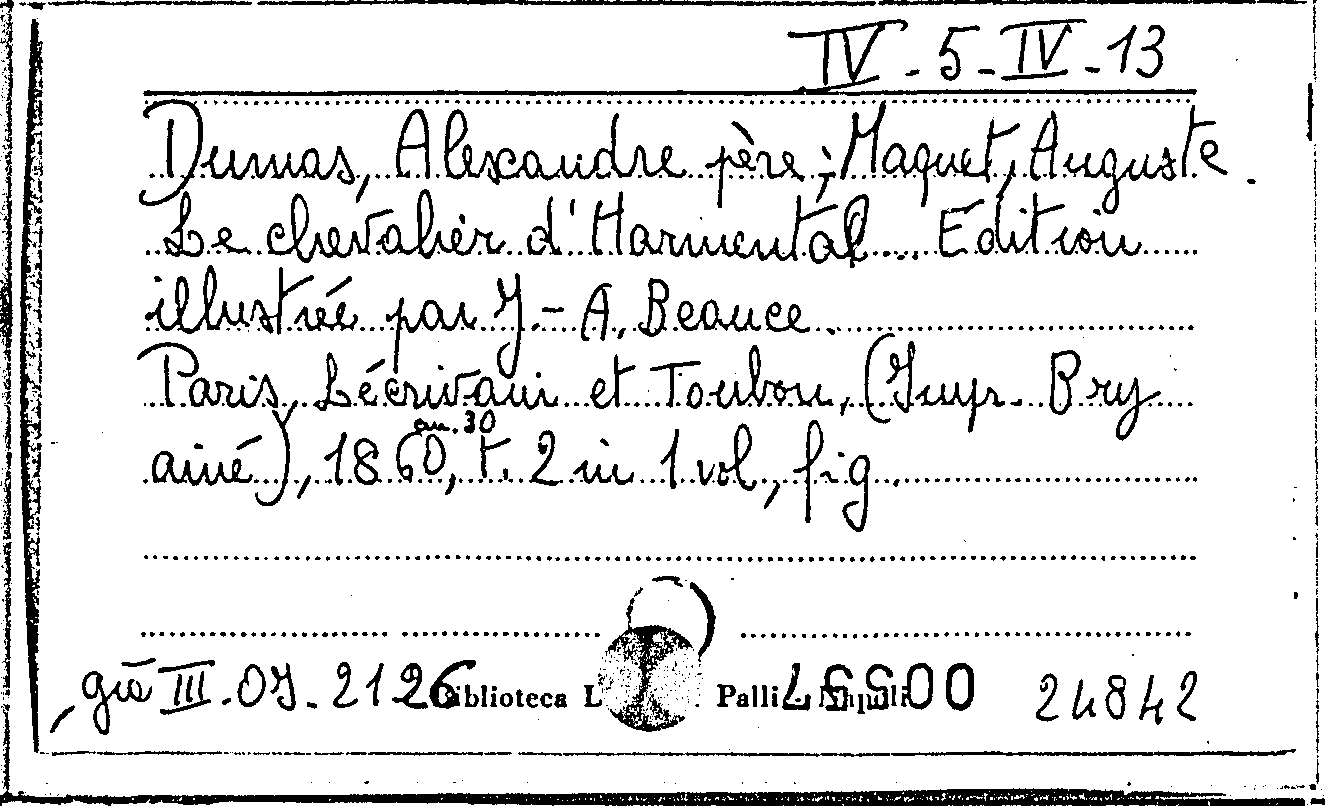 IV - 5 - IV - 13
Dumas, Alexandre père; Maquet, Auguste.
Le chevalier d'Harmental... Edition
illustrée par J.- A. Beauce.
Paris, Lécrivain et Toubon, (Impr. Bry
ainé), 1860, t. 2 in 1 vol., fig.
an. 30
già III. OJ. 2126 Biblioteca L Palli - Napoli 24842